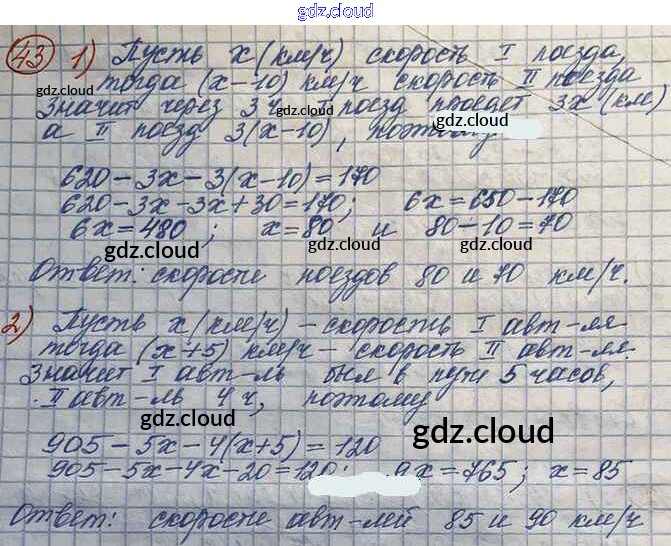 gdz.cloud
43 1) Пусть x (км/ч) скорость I поезда,
тогда (x-10) км/ч скорость II поезда
gdz.cloud
Значит через 3 ч I поезд проедет 3x (км)
gdz.cloud
а II поезд 3(x-10), поэтому
gdz.cloud
gdz.cloud
620-3x-3(x-10)=170
620-3x-3x+30=170; 6x=650-170
6x=480; x=80 и 80-10=70
gdz.cloud
gdz.cloud
Ответ: скорости поездов 80 и 70 км/ч.
2) Пусть x (км/ч) - скорость I авт-ля
тогда (x+5) км/ч - скорость II авт-ля.
Значит I авт-ль был в пути 5 часов,
II авт-ль 4 ч, поэтому
gdz.cloud
gdz.cloud
905-5x-4(x+5)=120
905-5x-4x-20=120; 9x=765; x=85
gdz.cloud
Ответ: скорости авт-лей 85 и 90 км/ч
gdz.cloud